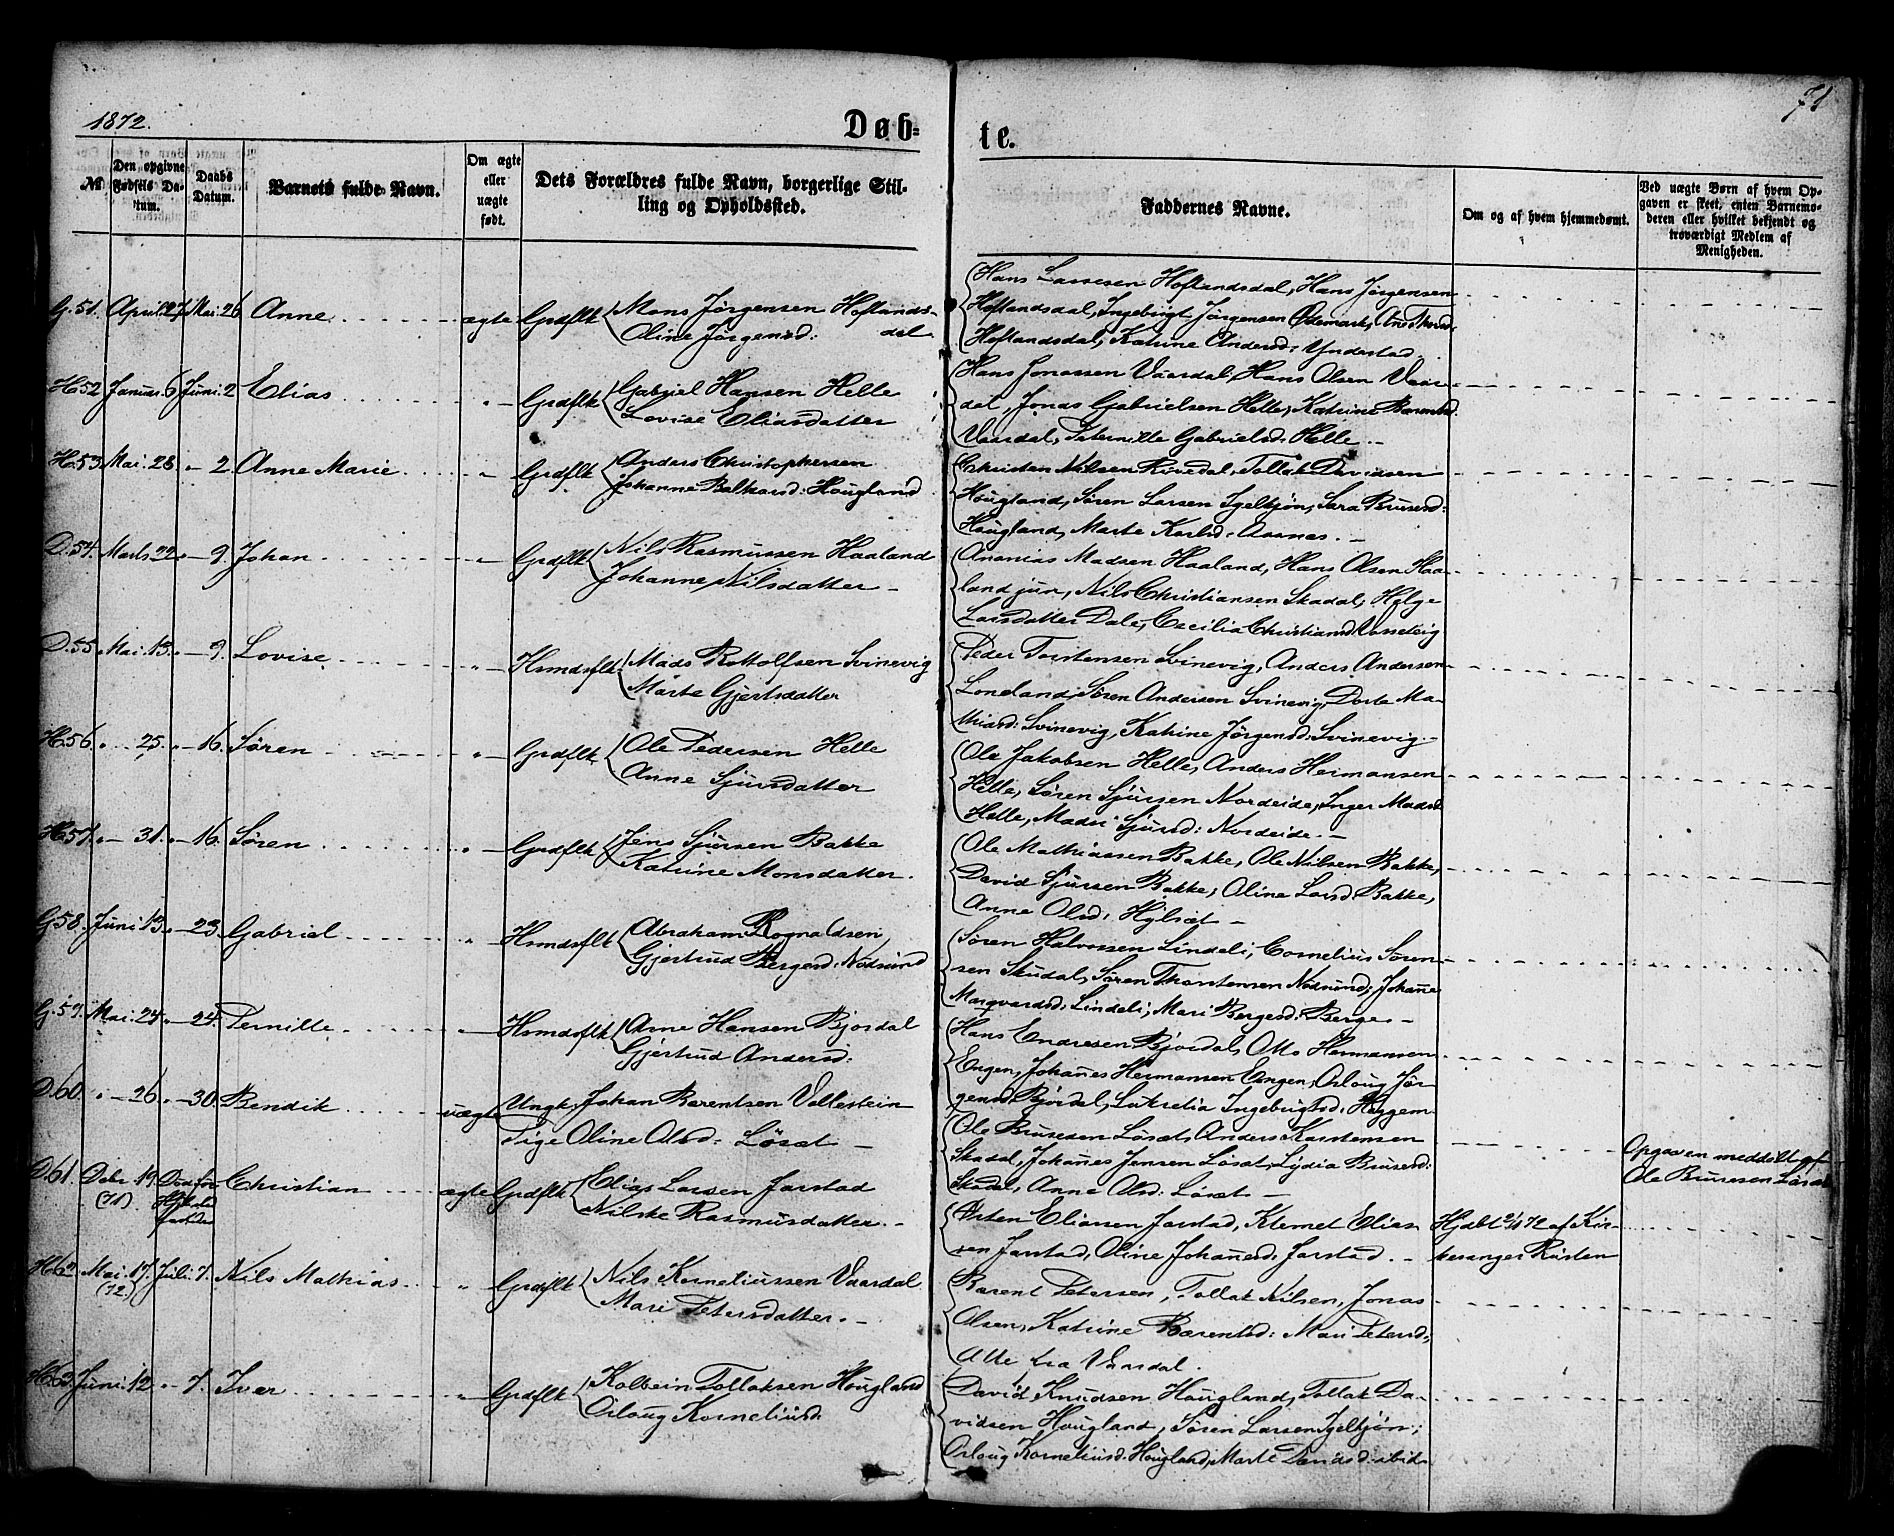 1872.
Døb=
te.
71
№
Den opgivne Fødsels Da-
tum.
Daabs
Datum.
Barnets fulde Navn.
Om ægte
eller
uægte
født.
Dets Forældres fulde Navn, borgerlige Stil-
ling og Opholdssted.
Faddernes Navne.
Om og af hvem hjemmedøbt.
Ved uægte Børn af hvem Op-
gaven er skeet, enten Barnemo-
deren eller hvilket bekjendt og
troværdigt Medlem af
Menigheden.
G. 51. April 27. Mai. 26 Anne ægte Grdflk Mons Jørgensen Hoflands-
Oline Jørgensd: dal
Hans Lassesen Hoflandsdal, Hans Jørgensen
Hoflandsdal, Ingebrigt Jørgensen Ødemark,
Hoflandsdal, Katrine Andersd: Yndestad
H. 52 6 Juni. 2 Elias " Grdflk Gabriel Hansen Helle
Lovise Eliasdatter
Hans Jonassen Vaardal, Hans Olsen Vaar-
dal, Jonas Gabrielsen Helle, Katrine Barentsd
Vaardal, Pernille Gabrielsd: Helle. -
H. 53. Mai. 28. " - 2 Anne Marie " Grdflk Anders Christophersen
Johanne Balthasd: Hougland
Christen Nilsen, Tollak Davidsen
Hougland, Søren Larsen Igelkjøn, Sara Brunsd:
Hougland, Marte Karlsd: Aasnæs. -
D. 54. Marts. 22. " - 9. Johan " Grdflk Nils Rasmussen Haaland
Johanne Nilsdatter -
Ananias Madsen Haaland, Hans Olsen Haa-
land jun, Nils Christiansen Skadal, Helge
Larsdatter Dale, Cecilia Christiansd
D. 55. Mai. 13. " - 9. Lovise " Hsmdsflk Mads Rottolfsen Svinevig
Marte Gjertsdatter
Peder Torstensen Svinevig, Anders Andersen
Loneland, Søren Andersen Svinevig, Dorte Ma-
thiasd: Svinevig, Katrine Jørgensd: Svinevig. -
H. 56. " - 25. " - 16. Søren " Grdflk Ole Pedersen Helle
Anne Sjursdatter
Ole Jakobsen Helle, Anders Heimansen
Helle, Søren Sjursen Nordeide, Inger Madsd
Helle, Madsi Sjursd: Nordeide. -
H. 57. " - 31. " - 16. Søren " Grdflk Jens Sjursen Bakke
Katrine Monsdatter.
Ole Mathiassen Bakke, Ole Nilsen Bakke,
David Sjursen Bakke, Oline Larsd: Bakke,
Anne Olsd: Hylsæt -
G. 58. Juni. 13. " - 23. Gabriel " Hsmdsflk Abraham Rognaldsen
Gjertrud Bergesd: Nødsund
Søren Halvorsen Lindeli, Cornelius Søren-
sen Skudal, Søren Thorstensen Nødsund, Johanne
Marqvardsd: Lindeli, Mari Bergesd: Berge -
G. 59. Mai. 24. " - 24. Pernille " Hsmdsflk Arne Hansen Bjordal
Gjertrud Andersd:
Hans Endresen Bjordal, Otto Hermansen
Engen, Johannes Hermansen Engen, Orloug Jør-
gensd Bjordal, Lukretia Ingebrigtsd: Heggem
D. 60. " - 26. " - 30. Bendik uægte Ungk. Johan Barentsen Vallestein
Pige Oline Olsd: Løsæt -
Ole Brusesen Løsæt, Anders Karstensen
Skadal, Johannes Jensen Løsæt, Lydia Brusesd:
Skadal, Anne Olsd: Løsæt -
Opgaven meddelt af
Ole Brusesen Løsæt
D. 61. Debr. 19. Christian ægte Grdflk Elias Larsen Jarstad
(71). Nilske Rasmusdatter. -
Østen Eliassen Jarstad, Klemet Elias-
sen Jarstad, Oline Johannesd, Jarstad. -
Hjdøbt af Kir-
H. 62 Mai. 17. Juli. 7. Nils Mathias " Grdflk Nils Korneliussen Vaardal
(72.) Mari Petersdatter. -
Barent Petersen, Tollak Nilsen, Jonas
Olsen, Katrine Barentsd: Mari Petersd:
Alle fra Vaardal.
H. 63. Juni. 12. " - 7. Ivar " Grdflk Kolbein Tollaksen Hougland
Orloug Korneliusd
David Knudsen Hougland, Tollak Da-
vidsen Hougland, Søren Larsen Igelkjøn,
Orloug Korneliusd: Hougland, Marte Davidsd: ibid